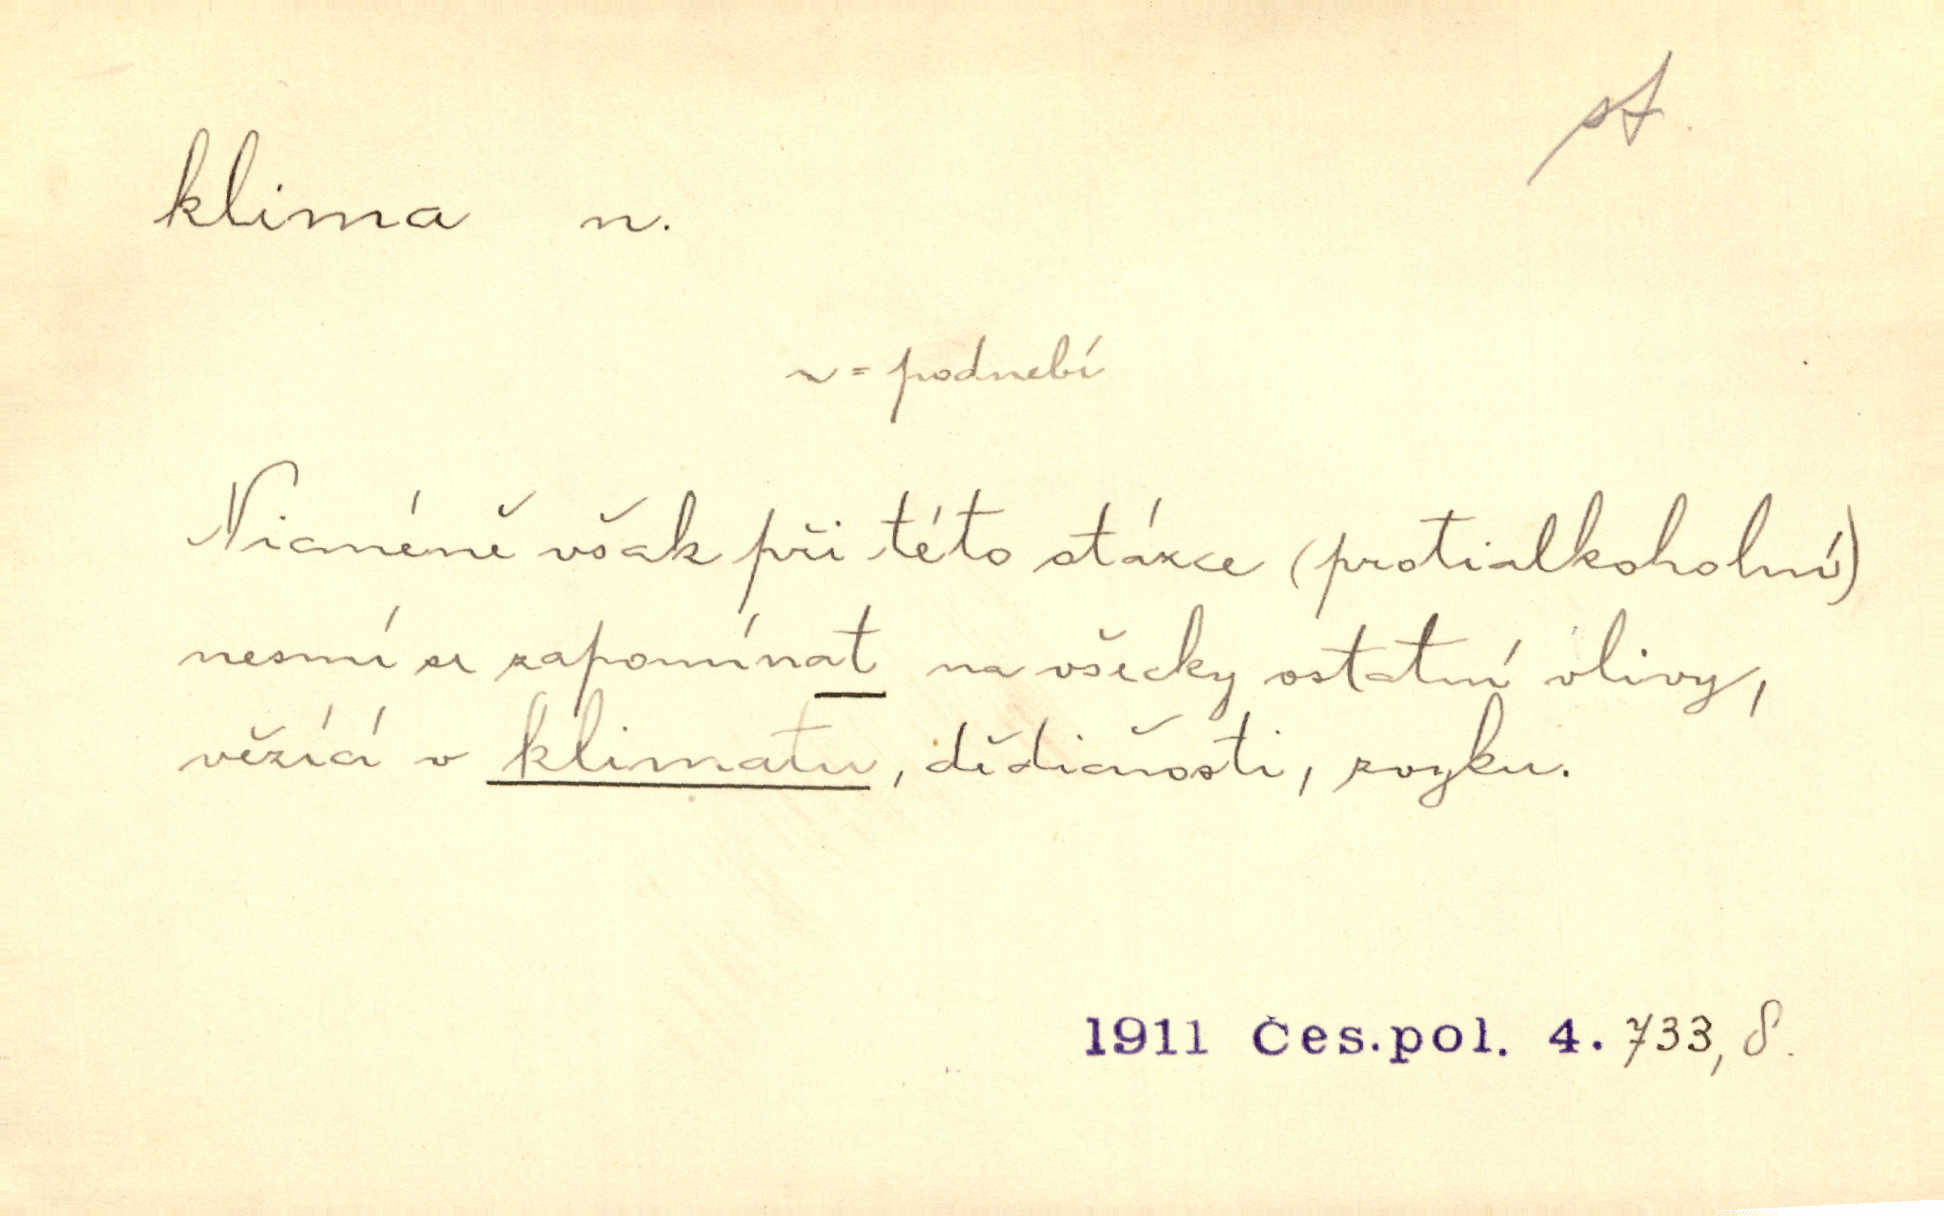 st.
klima n.
v = podnebí
Nicméně však při této otázce (protialkoholní)
nesmí se zapomínat na všecky ostatní vlivy,
vězící v klimatu, dědičnosti, zvyku.
1911 Čes.pol. 4. 733, 8.